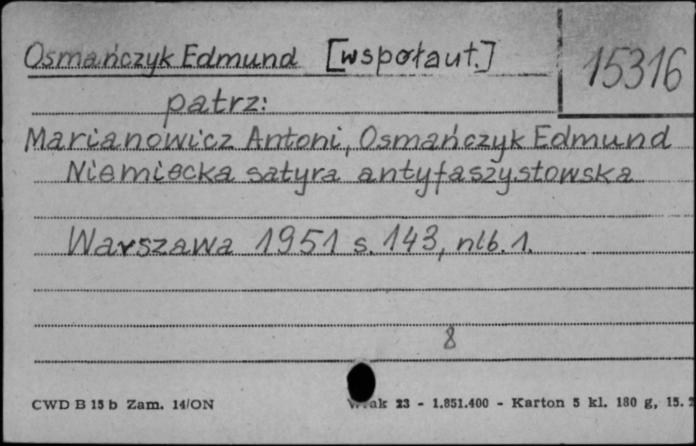 Osmańczyk Edmund [współaut.]
15316
patrz:
Marianowicz Antoni, Osmańczyk Edmund
Niemiecka satyra antyfaszystowska
Warszawa 1951 s. 143, nlb. 1.
8
CWD B 15 b Zam. 14/ON
23 - 1.851.400 - Karton 5 kl. 180 g, 15.